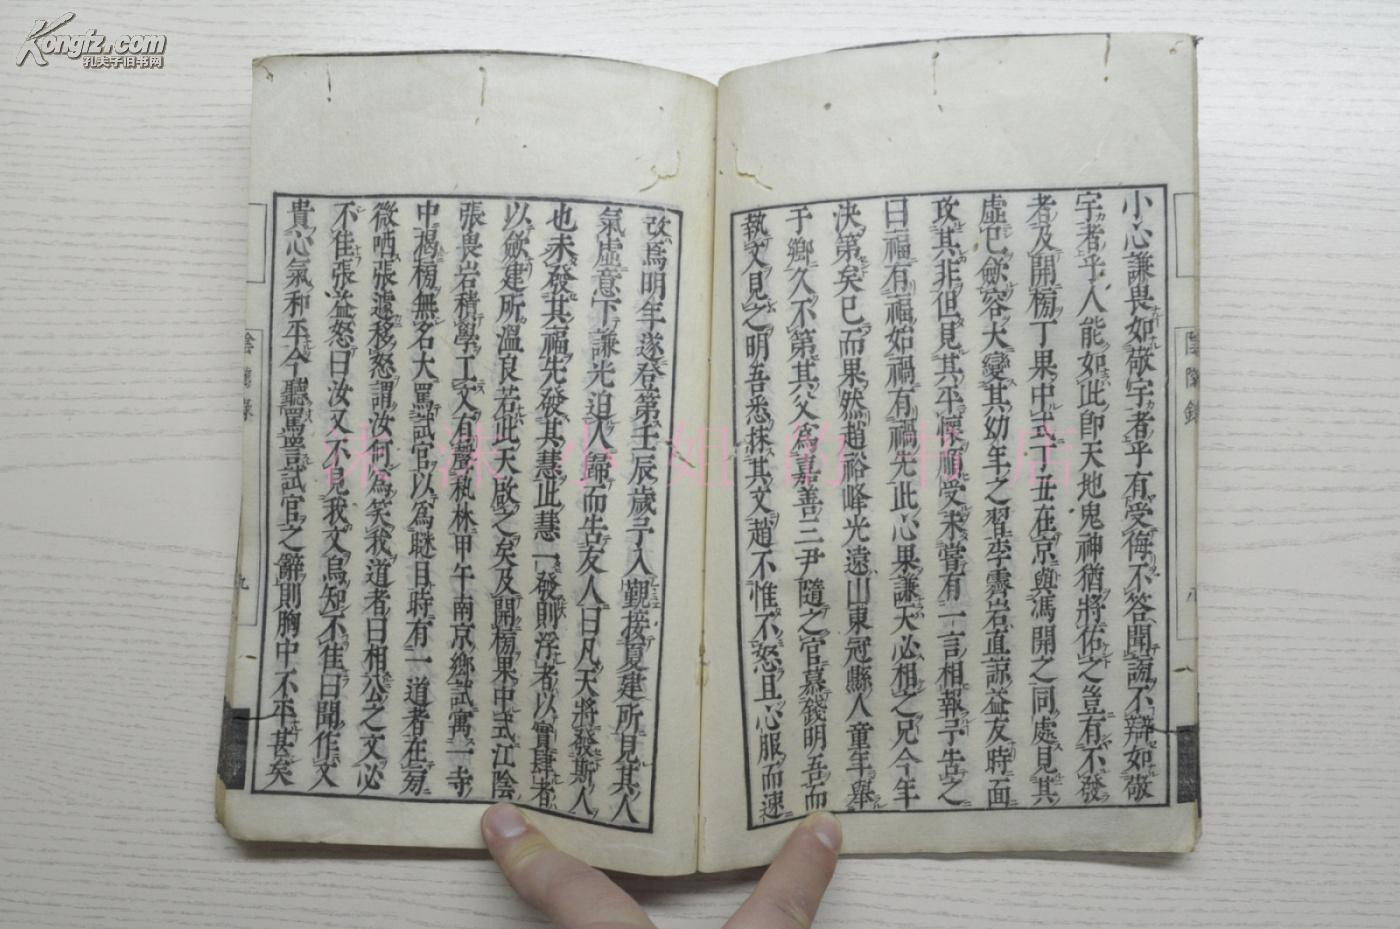 Kongfz.com
孔夫子旧书网
小心謙畏如敬宇者乎有受侮不答聞謗不辯如敬
宇者乎人能如此即天地鬼神猶將佑之豈有不發
者及開榜丁果中式丁丑在京與馮開之同處見其
虛已歛容大變其幼年之習李霽岩直諒益友時面
攻其非但見其平懷順受未嘗有一言相報予告之
曰福有福始禍有禍先此心果謙天必相之兄今年
決第矣已而果然趙裕峰光遠山東冠縣人童年舉
于鄉久不第其父爲嘉善三尹隨之官慕錢明吾而
執文見之明吾悉抹其文趙不惟不怒且心服而速
改爲明年遂登第壬辰歲予入覲接夏建所見其人
氣虛意下謙光迫人歸而告友人曰凡天將發斯人
也未發其福先發其慧此慧一發則浮者以實肆者
以歛建所溫良若此天啟之矣及開榜果中式江陰
張畏岩積學工文有聲執林甲午南京鄉試寓一寺
中揭榜無名大罵試官以爲瞇目時有一道者在旁
微哂張遽移怒謂汝何爲笑我道者曰相公之文必
不佳張益怒曰汝又不見我文烏知不佳曰聞作文
貴心氣和平今聽罵詈試官之辭則胸中不平甚矣
陰隲錄
八
陰隲錄
九
沫沫小姐的书店